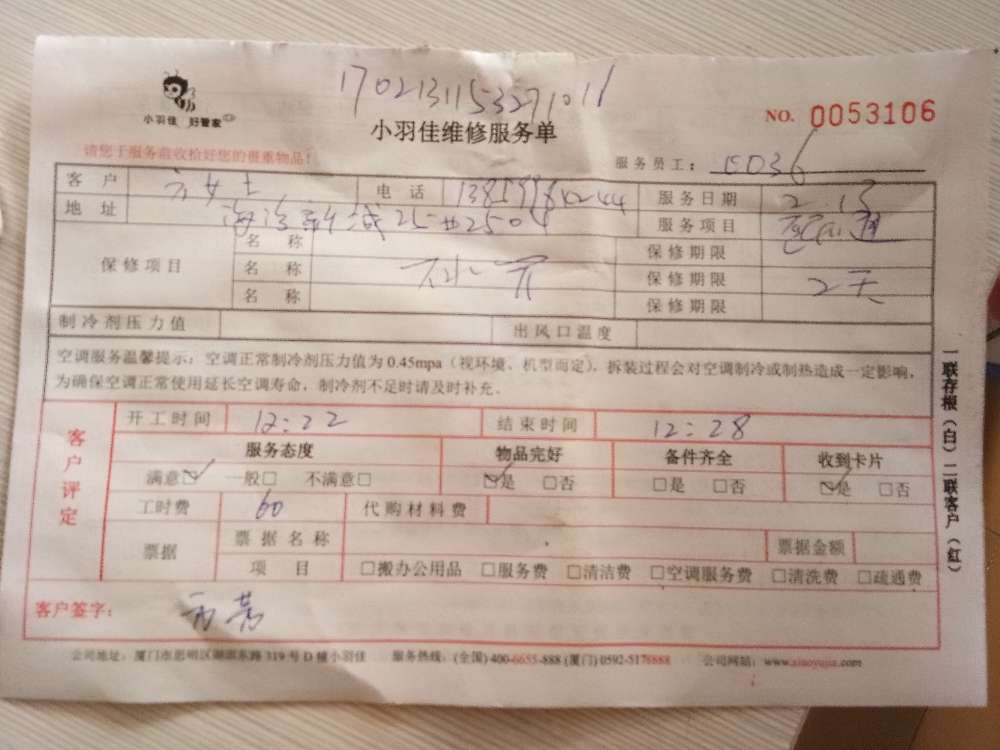 17021311532710 11
小羽佳 好管家
小羽佳维修服务单
NO. 0053106
请您于服务前收检好您的贵重物品!
服务员工: 0036
客户 方女士 电话 服务日期 2.13
地址 海沧新城25#2504 服务项目
保修项目 名称 保修期限
名称 保修期限 2天
名称 保修期限
制冷剂压力值 出风口温度
空调服务温馨提示:空调正常制冷剂压力值为 0.45mpa(视环境、机型而定),拆装过程会对空调制冷或制热造成一定影响,
为确保空调正常使用延长空调寿命,制冷剂不足时请及时补充.
客户评定
开工时间 12:22 结束时间 12:28
服务态度 物品完好 备件齐全 收到卡片
满意☑ 一般□ 不满意□ ☑是 □否 □是 □否 ☑是 □否
工时费 60 代购材料费
票据 票据名称 票据金额
项目 □搬办公用品 □服务费 □清洁费 □空调服务费 □清洗费 □疏通费
客户签字:
公司地址:厦门市思明区湖滨东路 319 号 D 幢小羽佳 服务热线:(全国) 400-6655-888 (厦门) 0592-5176888 公司网站:www.xiaoyujia.com
一联存根(白)二联客户(红)